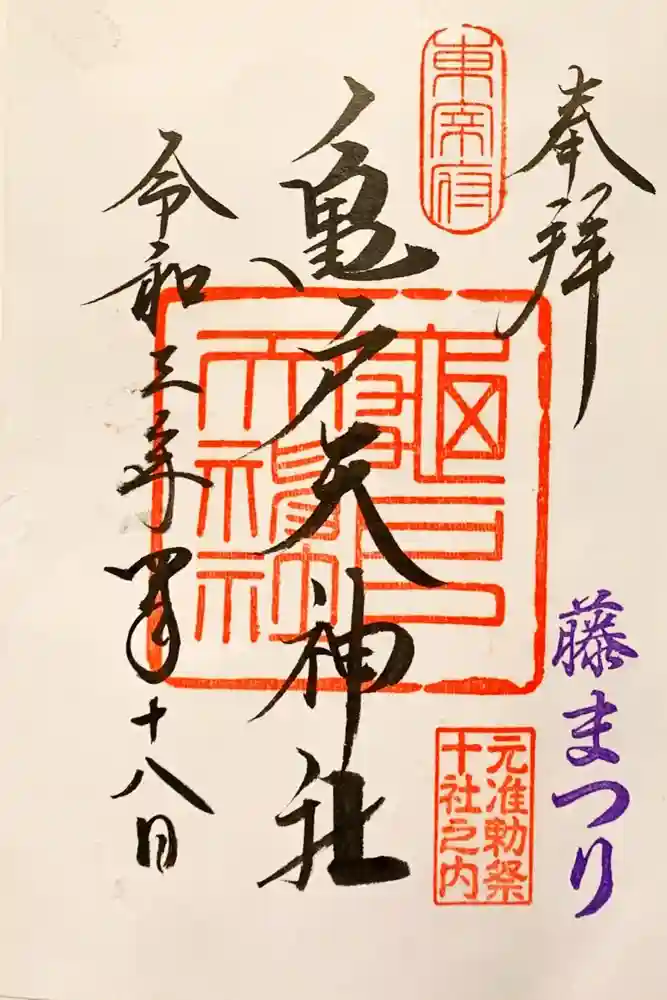 奉拝
藤まつり
東宰府
元准勅祭
十社之内
亀戸天神社
令和三年四月十八日